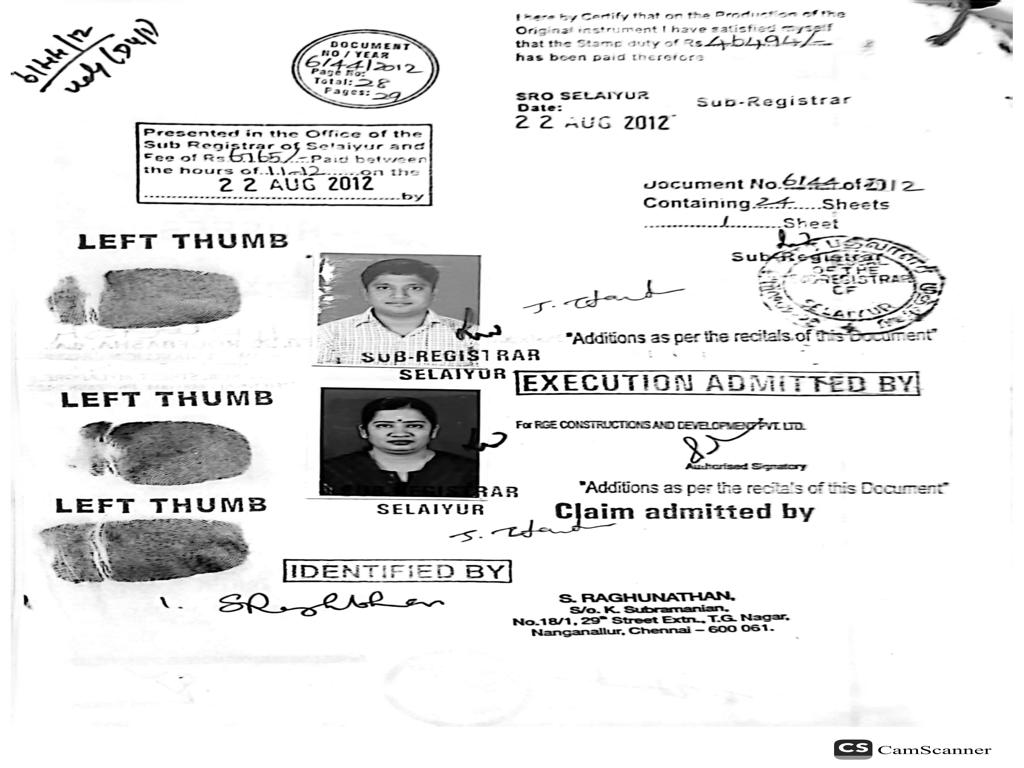 6144/12
DOCUMENT
NO / YEAR
6144/2012
Page No:
Total: 28
Pages: 29
I here by Certify that on the Production of the
Original instrument I have satisfied myself
that the Stamp duty of Rs 46494/-
has been paid therefore
SRO SELAIYUR
Date:
Sub-Registrar
22 AUG 2012
Presented in the Office of the
Sub Registrar of Selaiyur and
Fee of Rs 6765/- Paid between
the hours of 11-12 on the
22 AUG 2012
by
Document No. 6144 of 2012
Containing 24 Sheets
1 Sheet
Sub-Registrar
OF THE
SELAIYUR
LEFT THUMB
SUB-REGISTRAR
SELAIYUR
"Additions as per the recitals of this Document"
EXECUTION ADMITTED BY
LEFT THUMB
For RGE CONSTRUCTIONS AND DEVELOPMENT PVT. LTD.
Authorised Signatory
SUB-REGISTRAR
SELAIYUR
"Additions as per the recitals of this Document"
Claim admitted by
LEFT THUMB
IDENTIFIED BY
1.
S. RAGHUNATHAN,
S/o. K. Subramanian,
No.18/1, 29th Street Extn., T.G. Nagar,
Nanganallur, Chennai – 600 061.
CS CamScanner